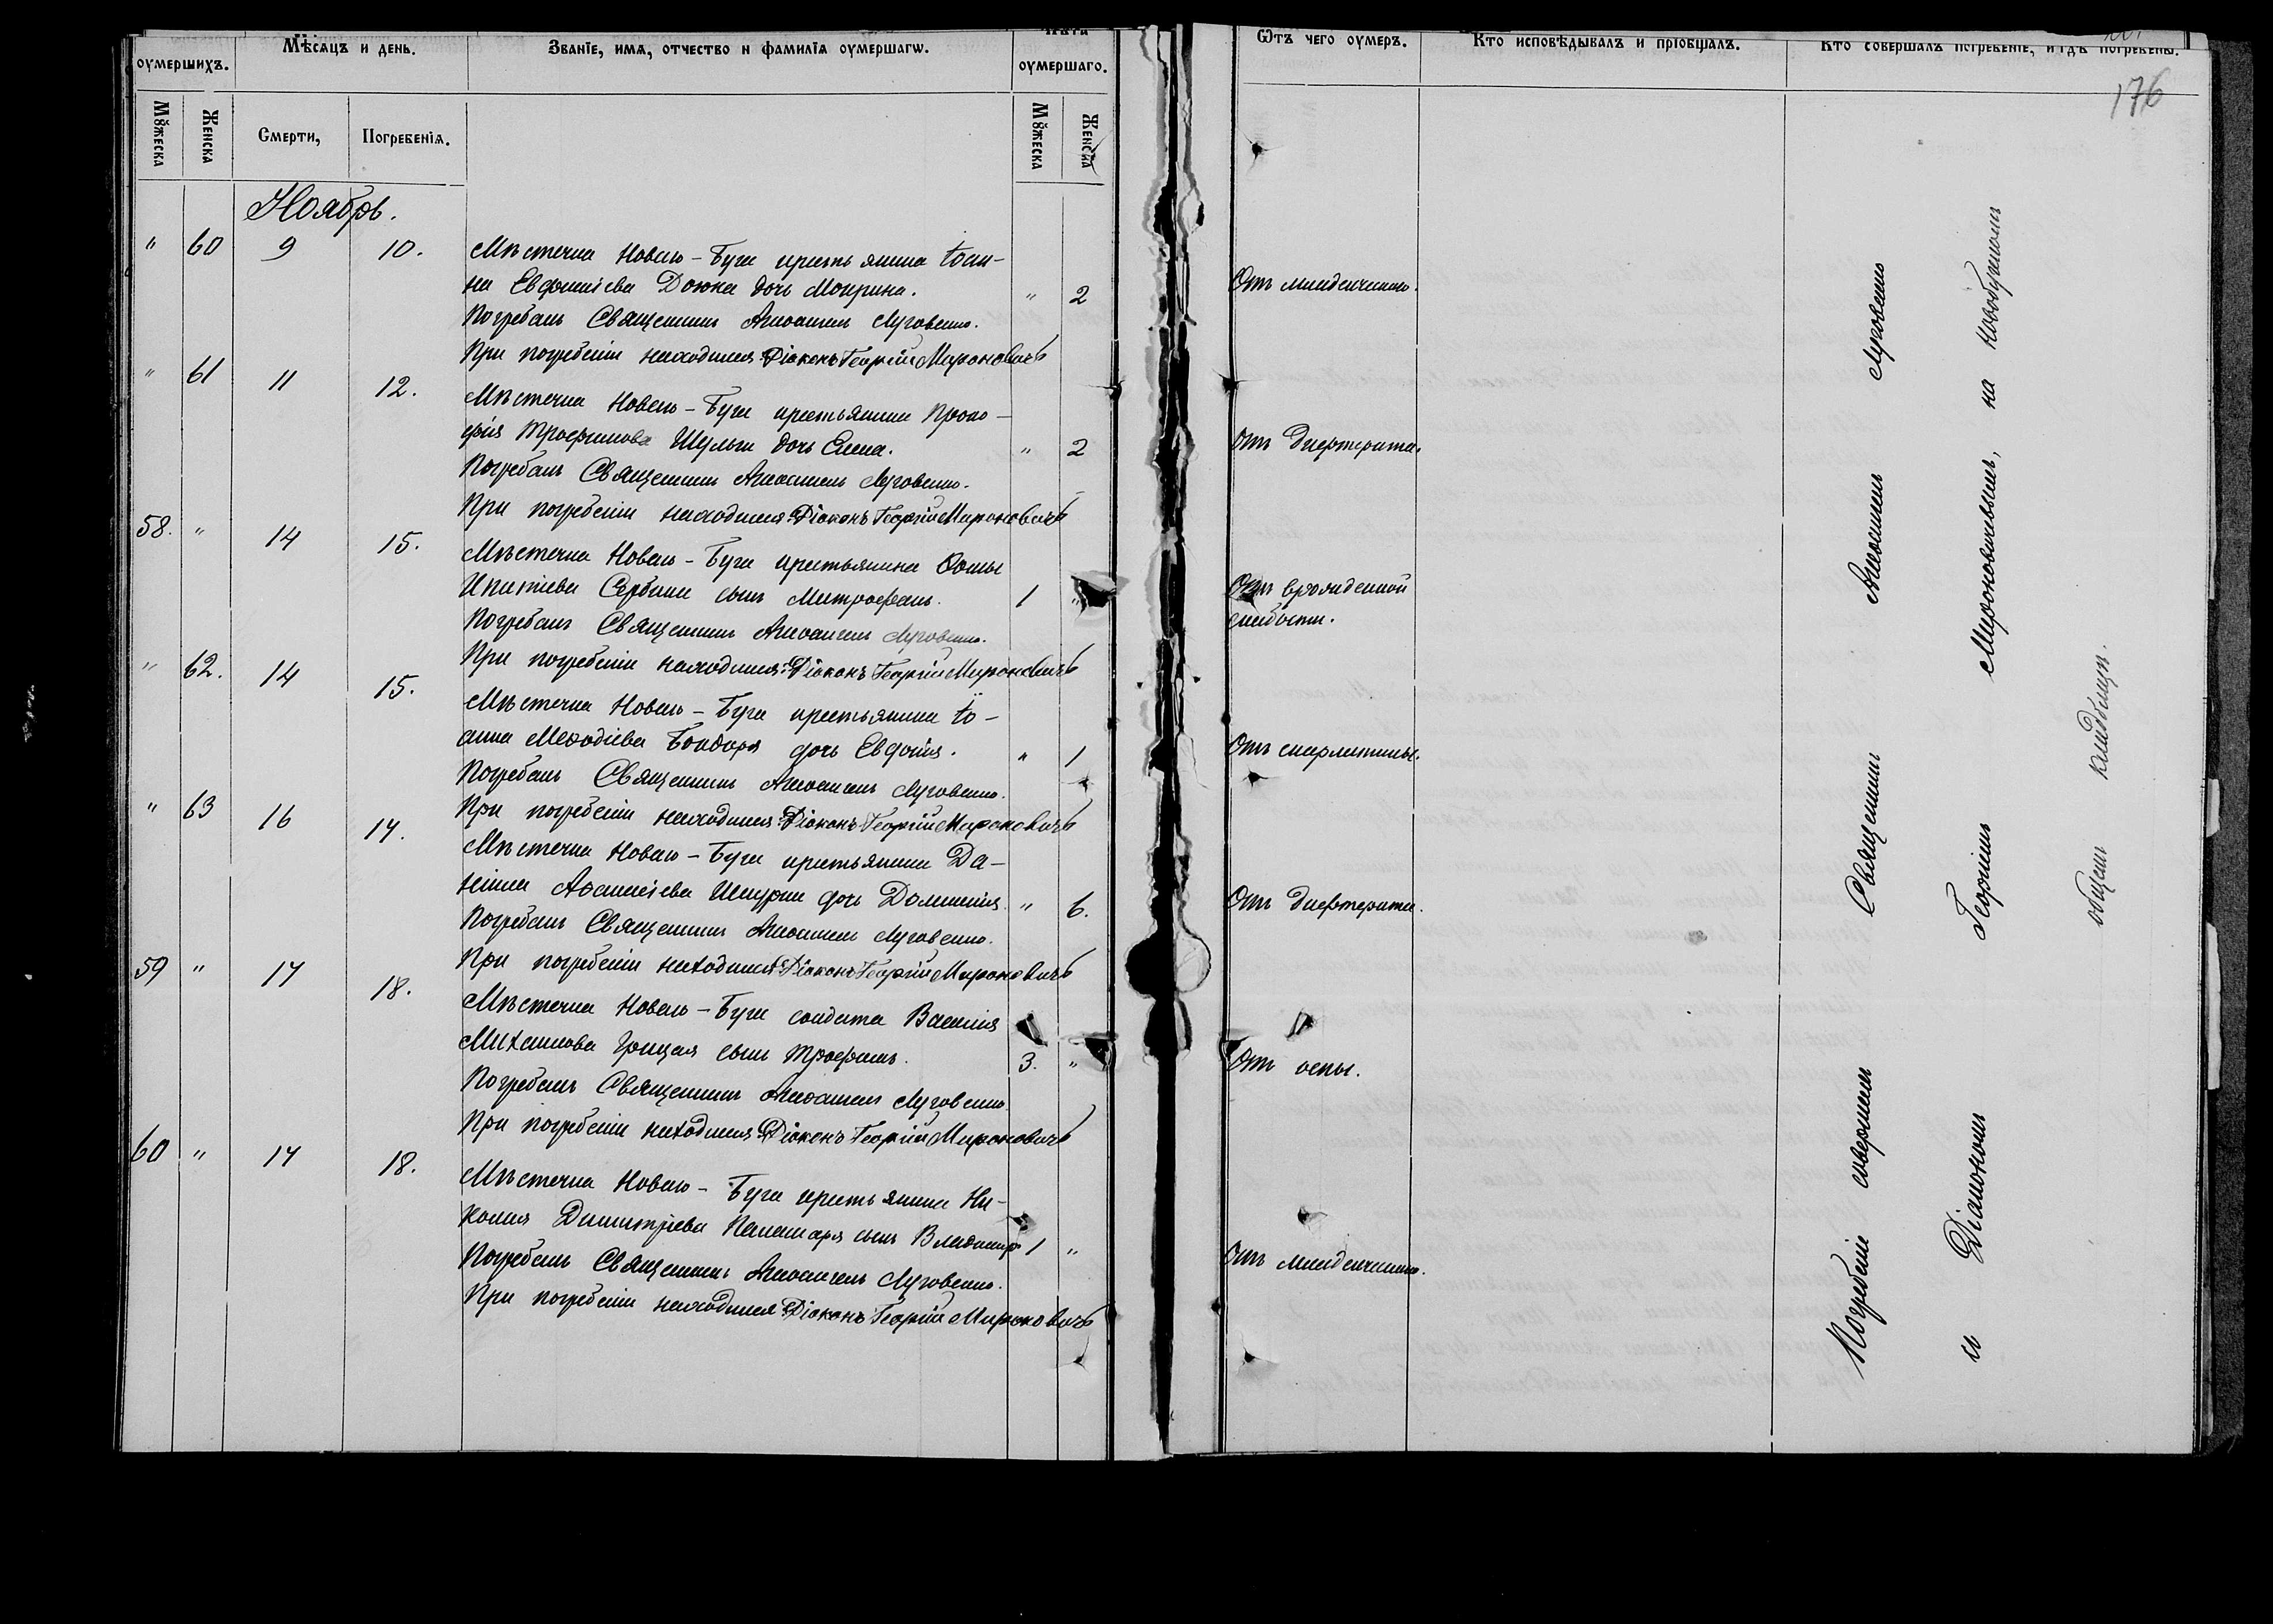 оумершихъ.
Мѣсяцъ и день.
Званіе, имя, отчество и фамилія оумершагѡ.
Лѣта оумершаго.
Мꙋжеска
Женска
Смерти,
Погребенія.
Мꙋжеска
Женска
Ѿтъ чего оумеръ.
Кто исповѣдывалъ и пріобщалъ.
Кто совершалъ погребеніе, и гдѣ погребены.
176
Ноябрь.
" 60 9 10.
Мѣстечка Новаго-Буга крестьянина Іоан-
на Евфиміева Доюка дочь Мокрина. " 2 Отъ младенческаго.
Погребалъ Священникъ Луговенко.
При погребеніи находился Діаконъ Георгій Мироновичъ
" 61 11 12.
Мѣстечка Новаго-Буга крестьянина Проко-
фія Трофимова Шульги дочь Елена. " 2 Отъ дифтерита.
Погребалъ Священникъ Луговенко.
При погребеніи находился Діаконъ Георгій Мироновичъ
58. " 14 15.
Мѣстечка Новаго-Буга крестьянина Ѳомы
Ипатіева Сербина сынъ Митрофанъ. 1 " Отъ врожденной
слабости.
Погребалъ Священникъ Луговенко.
При погребеніи находился Діаконъ Георгій Мироновичъ
" 62. 14 15.
Мѣстечка Новаго-Буга крестьянина Іо-
анна Меѳодіева Бондаря дочь Евдокія. " 1 Отъ скарлатины.
Погребалъ Священникъ Луговенко.
При погребеніи находился Діаконъ Георгій Мироновичъ
" 63 16 17.
Мѣстечка Новаго-Буга крестьянина Да-
ніила Аѳанасіева дочь Домникія. " 6. Отъ дифтерита.
Погребалъ Священникъ Луговенко.
При погребеніи находился Діаконъ Георгій Мироновичъ
59 " 17 18.
Мѣстечка Новаго-Буга солдата Василія
Михаилова Грицая сынъ Трофимъ. 3. " Отъ оспы.
Погребалъ Священникъ Луговенко.
При погребеніи находился Діаконъ Георгій Мироновичъ
60 " 17 18.
Мѣстечка Новаго-Буга крестьянина Ни-
колая Димитріева Паламаря сынъ Владиміръ 1 " Отъ младенческаго.
Погребалъ Священникъ Луговенко.
При погребеніи находился Діаконъ Георгій Мироновичъ
Погребеніе совершалъ Священникъ Луговенко
и Діакономъ Георгіемъ Мироновичевымъ, на Новобугскомъ
общемъ кладбищѣ.